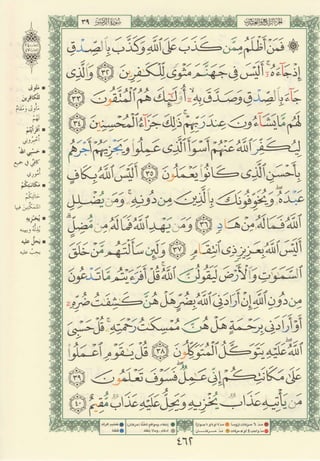 ٣٩
سورة الزمر
٣٩
فَمَنْ أَظْلَمُ مِمَّن كَذَبَ عَلَى ٱللَّهِ وَكَذَّبَ بِٱلصِّدْقِ
إِذْ جَآءَهُۥٓ أَلَيْسَ فِى جَهَنَّمَ مَثْوًى لِّلْكَٰفِرِينَ ٣٢ وَٱلَّذِى
جَآءَ بِٱلصِّدْقِ وَصَدَّقَ بِهِۦٓ أُو۟لَٰٓئِكَ هُمُ ٱلْمُتَّقُونَ ٣٣
لَهُم مَّا يَشَآءُونَ عِندَ رَبِّهِمْ ذَٰلِكَ جَزَآءُ ٱلْمُحْسِنِينَ ٣٤
لِيُكَفِّرَ ٱللَّهُ عَنْهُمْ أَسْوَأَ ٱلَّذِى عَمِلُوا۟ وَيَجْزِيَهُمْ أَجْرَهُم
بِأَحْسَنِ ٱلَّذِى كَانُوا۟ يَعْمَلُونَ ٣٥ أَلَيْسَ ٱللَّهُ بِكَافٍ
عَبْدَهُۥ وَيُخَوِّفُونَكَ بِٱلَّذِينَ مِن دُونِهِۦ وَمَن يُضْلِلِ
ٱللَّهُ فَمَا لَهُۥ مِنْ هَادٍ ٣٦ وَمَن يَهْدِ ٱللَّهُ فَمَا لَهُۥ مِن مُّضِلٍّ
أَلَيْسَ ٱللَّهُ بِعَزِيزٍ ذِى ٱنتِقَامٍ ٣٧ وَلَئِن سَأَلْتَهُم مَّنْ خَلَقَ
ٱلسَّمَٰوَٰتِ وَٱلْأَرْضَ لَيَقُولُنَّ ٱللَّهُ قُلْ أَفَرَءَيْتُم مَّا تَدْعُونَ
مِن دُونِ ٱللَّهِ إِنْ أَرَادَنِىَ ٱللَّهُ بِضُرٍّ هَلْ هُنَّ كَٰشِفَٰتُ ضُرِّهِۦٓ
أَوْ أَرَادَنِى بِرَحْمَةٍ هَلْ هُنَّ مُمْسِكَٰتُ رَحْمَتِهِۦ قُلْ حَسْبِىَ
ٱللَّهُ عَلَيْهِ يَتَوَكَّلُ ٱلْمُتَوَكِّلُونَ ٣٨ قُلْ يَٰقَوْمِ ٱعْمَلُوا۟
عَلَىٰ مَكَانَتِكُمْ إِنِّى عَٰمِلٌ فَسَوْفَ تَعْلَمُونَ ٣٩
مَن يَأْتِيهِ عَذَابٌ يُخْزِيهِ وَيَحِلُّ عَلَيْهِ عَذَابٌ مُّقِيمٌ ٤٠
٤٦٢